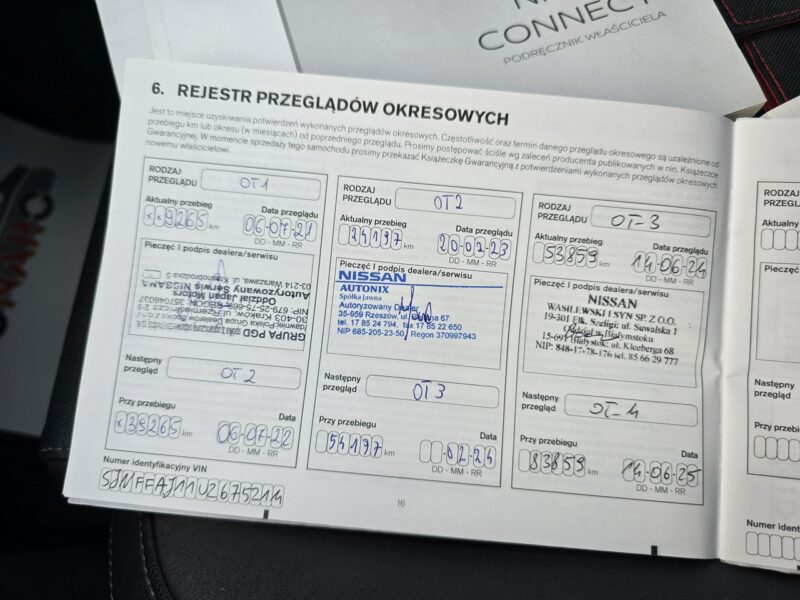 CONNECT
PODRĘCZNIK WŁAŚCICIELA
6. REJESTR PRZEGLĄDÓW OKRESOWYCH
Jest to miejsce uzyskiwania potwierdzeń wykonanych przeglądów okresowych. Częstotliwość oraz termin danego przeglądu okresowego są uzależnione od
przebiegu km lub okresu (w miesiącach) od poprzedniego przeglądu. Prosimy postępować ściśle wg zaleceń producenta publikowanych w nin. Książeczce
Gwarancyjnej. W momencie sprzedaży tego samochodu prosimy przekazać Książeczkę Gwarancyjną z potwierdzeniami wykonanych przeglądów okresowych
nowemu właścicielowi.
RODZAJ
PRZEGLĄDU OT1
Aktualny przebieg Data przeglądu
xx9265 km 06-07-21
DD - MM - RR
Pieczęć i podpis dealera/serwisu
GRUPA PGD
Oddział Japan Motors
Autoryzowany Serwis NISSAN
Następny
przegląd OT2
Przy przebiegu Data
x39265 km 06-07-22
DD - MM - RR
Numer identyfikacyjny VIN
SJNFFAJ11U2675214
RODZAJ
PRZEGLĄDU OT2
Aktualny przebieg Data przeglądu
24197 km 20-02-23
DD - MM - RR
Pieczęć i podpis dealera/serwisu
NISSAN
AUTONIX
Spółka jawna
Autoryzowany Dealer
35-959 Rzeszów, ul. 67
tel. 17 85 24 794, fax 17 85 22 650
NIP 685-205-23-50 Regon 370997943
Następny
przegląd OT3
Przy przebiegu Data
54197 km 02-24
DD - MM - RR
RODZAJ
PRZEGLĄDU OT-3
Aktualny przebieg Data przeglądu
53859 km 14-06-24
DD - MM - RR
Pieczęć i podpis dealera/serwisu
NISSAN
WASILEWSKI I SYN SP. Z O.O.
19-301 Ełk, Szeligi; ul. Suwalska 1
Oddział w Białymstoku
15-691 Białystok; ul. Kleeberga 68
NIP: 848-17-78-176 tel. 85 66 29 777
Następny
przegląd OT-4
Przy przebiegu Data
83859 km 14-06-25
DD - MM - RR
16
RODZAJ
PRZEGLĄDU
Aktualny
Pieczęć
Następny
przegląd
Przy przebiegu
Numer ident